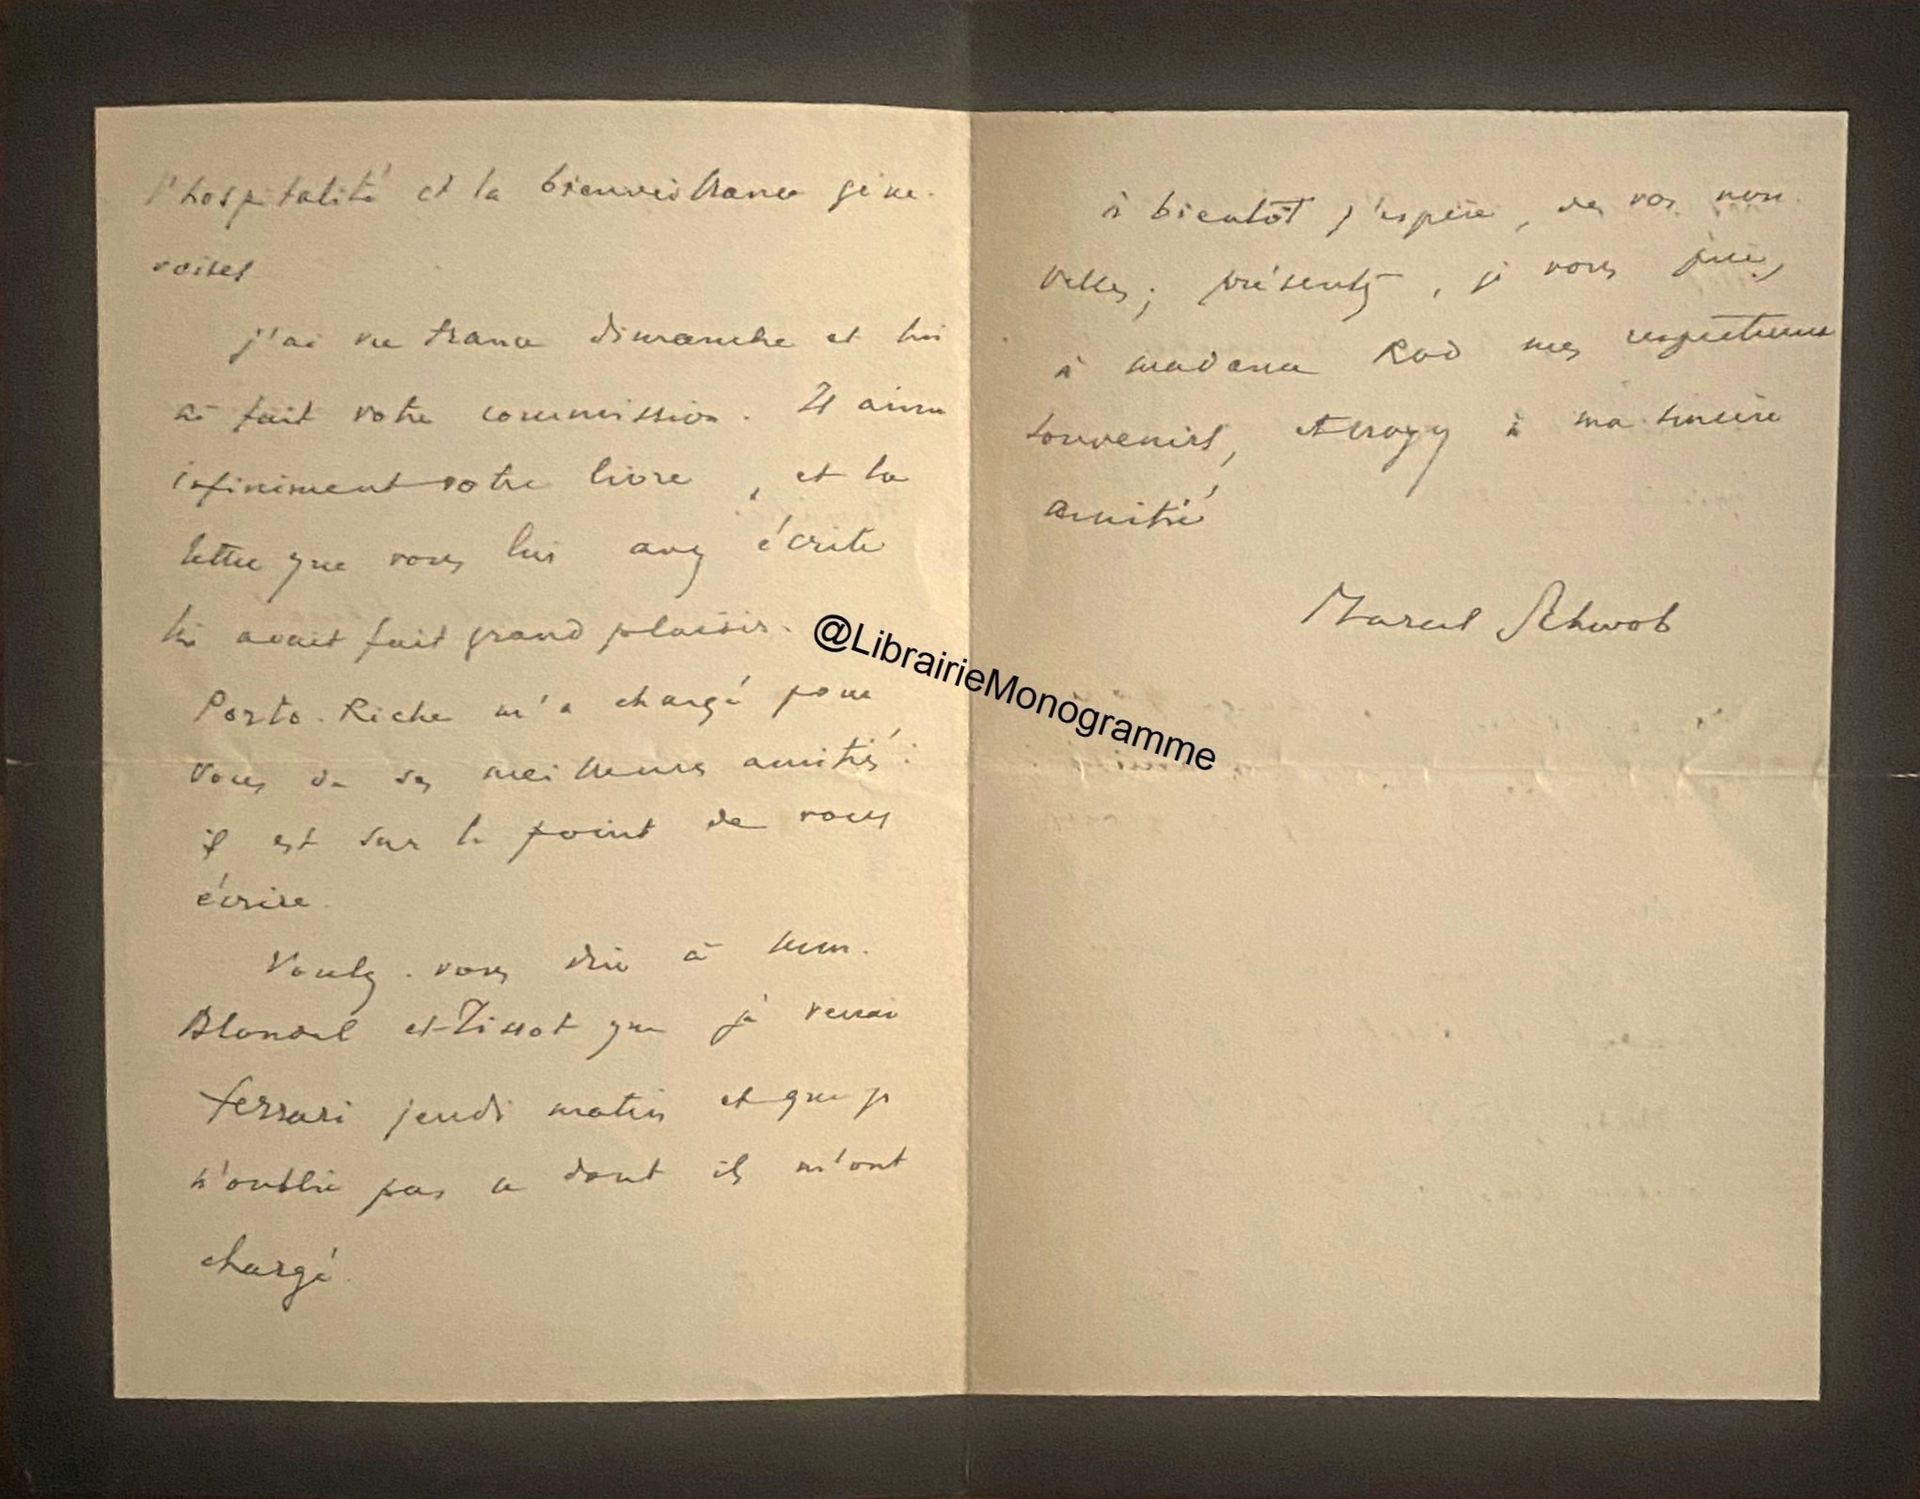 l'hospitalité et la bienveillance gene-
voises
J'ai vu France dimanche et lui
ai fait votre commission. Il aime
infiniment votre livre, et la
lettre que vous lui avez écrite
lui avait fait grand plaisir.
Porto-Riche m'a chargé pour
vous de ses meilleures amitiés :
il est sur le point de vous
écrire.
Voulez-vous dire à MM.
Blondel et Tissot que je verrai
Ferrari jeudi matin et que je
n'oublie pas ce dont ils m'ont
chargé.
à bientôt j'espère, de vos nou-
velles ; présentez, je vous prie,
à madame Rod mes respectueux
souvenirs, et croyez à ma sincère
amitié
Marcel Schwob
@LibrairieMonogramme